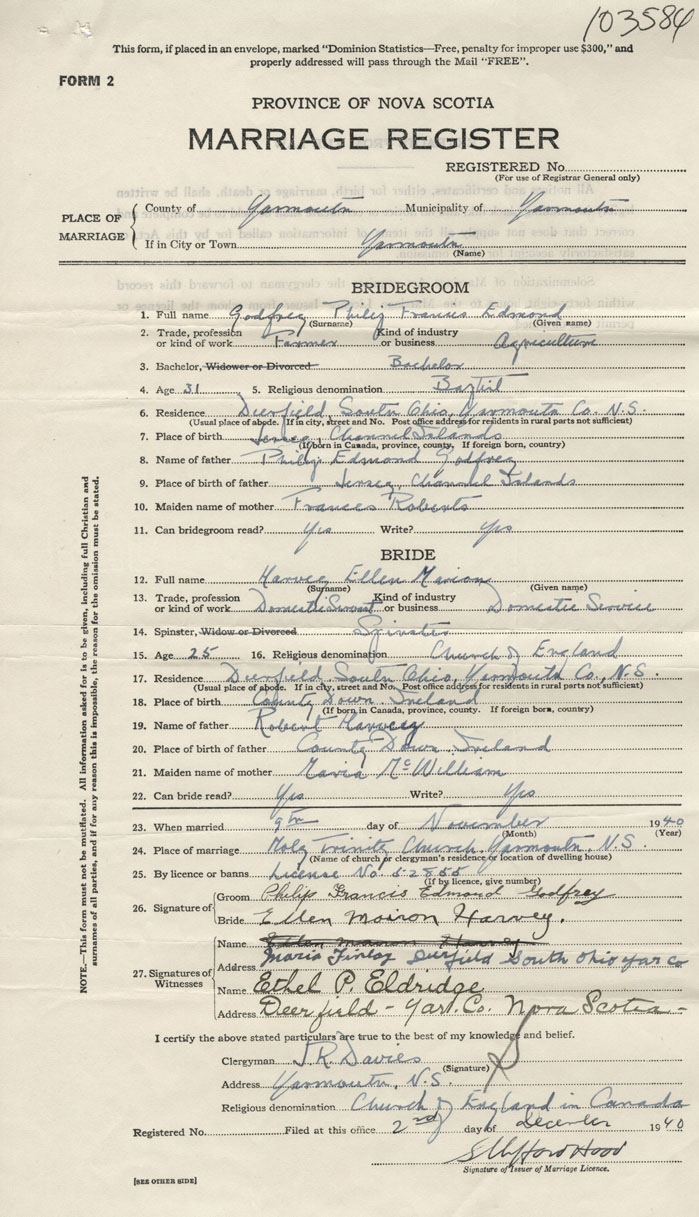 103584
This form, if placed in an envelope, marked "Dominion Statistics—Free, penalty for improper use $300," and
properly addressed will pass through the Mail "FREE".
FORM 2
PROVINCE OF NOVA SCOTIA
MARRIAGE REGISTER
REGISTERED No.
(For use of Registrar General only)
PLACE OF MARRIAGE
County of Yarmouth Municipality of Yarmouth
If in City or Town Yarmouth
(Name)
BRIDEGROOM
1. Full name Godfrey Philip Francis Edmond
(Surname) (Given name)
2. Trade, profession or kind of work Farmer Kind of industry or business Agriculture
3. Bachelor, Widower or Divorced Bachelor
4. Age 31 5. Religious denomination Baptist
6. Residence Deerfield, South Ohio, Yarmouth Co. N.S.
(Usual place of abode. If in city, street and No. Post office address for residents in rural parts not sufficient)
7. Place of birth Jersey, Channel Islands
(If born in Canada, province, county. If foreign born, country)
8. Name of father Philip Edmond Godfrey
9. Place of birth of father Jersey, Channel Islands
10. Maiden name of mother Frances Roberts
11. Can bridegroom read? Yes Write? Yes
BRIDE
12. Full name Harvey Ellen Marion
(Surname) (Given name)
13. Trade, profession or kind of work Domestic Servant Kind of industry or business Domestic Service
14. Spinster, Widow or Divorced Spinster
15. Age 25 16. Religious denomination Church of England
17. Residence Deerfield, South Ohio, Yarmouth Co., N.S.
(Usual place of abode. If in city, street and No. Post office address for residents in rural parts not sufficient)
18. Place of birth County Down, Ireland
(If born in Canada, province, county. If foreign born, country)
19. Name of father Robert Harvey
20. Place of birth of father County Down, Ireland
21. Maiden name of mother Maria McWilliam
22. Can bride read? Yes Write? Yes
23. When married 9th day of November 1940
(Month) (Year)
24. Place of marriage Holy Trinity Church, Yarmouth, N.S.
(Name of church or clergyman's residence or location of dwelling house)
25. By licence or banns License No. 52855
(If by licence, give number)
26. Signature of
Groom Philip Francis Edmond Godfrey
Bride Ellen Moiron Harvey.
27. Signatures of Witnesses
Name Ellen Marion Harvey
Address Maria Finlay Deerfield South Ohio Yar Co
Name Ethel P. Eldridge
Address Deerfield - Yar. Co. Nova Scotia -
I certify the above stated particulars are true to the best of my knowledge and belief.
Clergyman J.R. Davies
(Signature)
Address Yarmouth, N.S.
Religious denomination Church of England in Canada
Registered No. Filed at this office 2nd day of December 1940
Signature of Issuer of Marriage Licence.
[SEE OTHER SIDE]
NOTE.—This form must not be mutilated. All information asked for is to be given, including full Christian and
surnames of all parties, and if for any reason this is impossible, the reason for the omission must be stated.